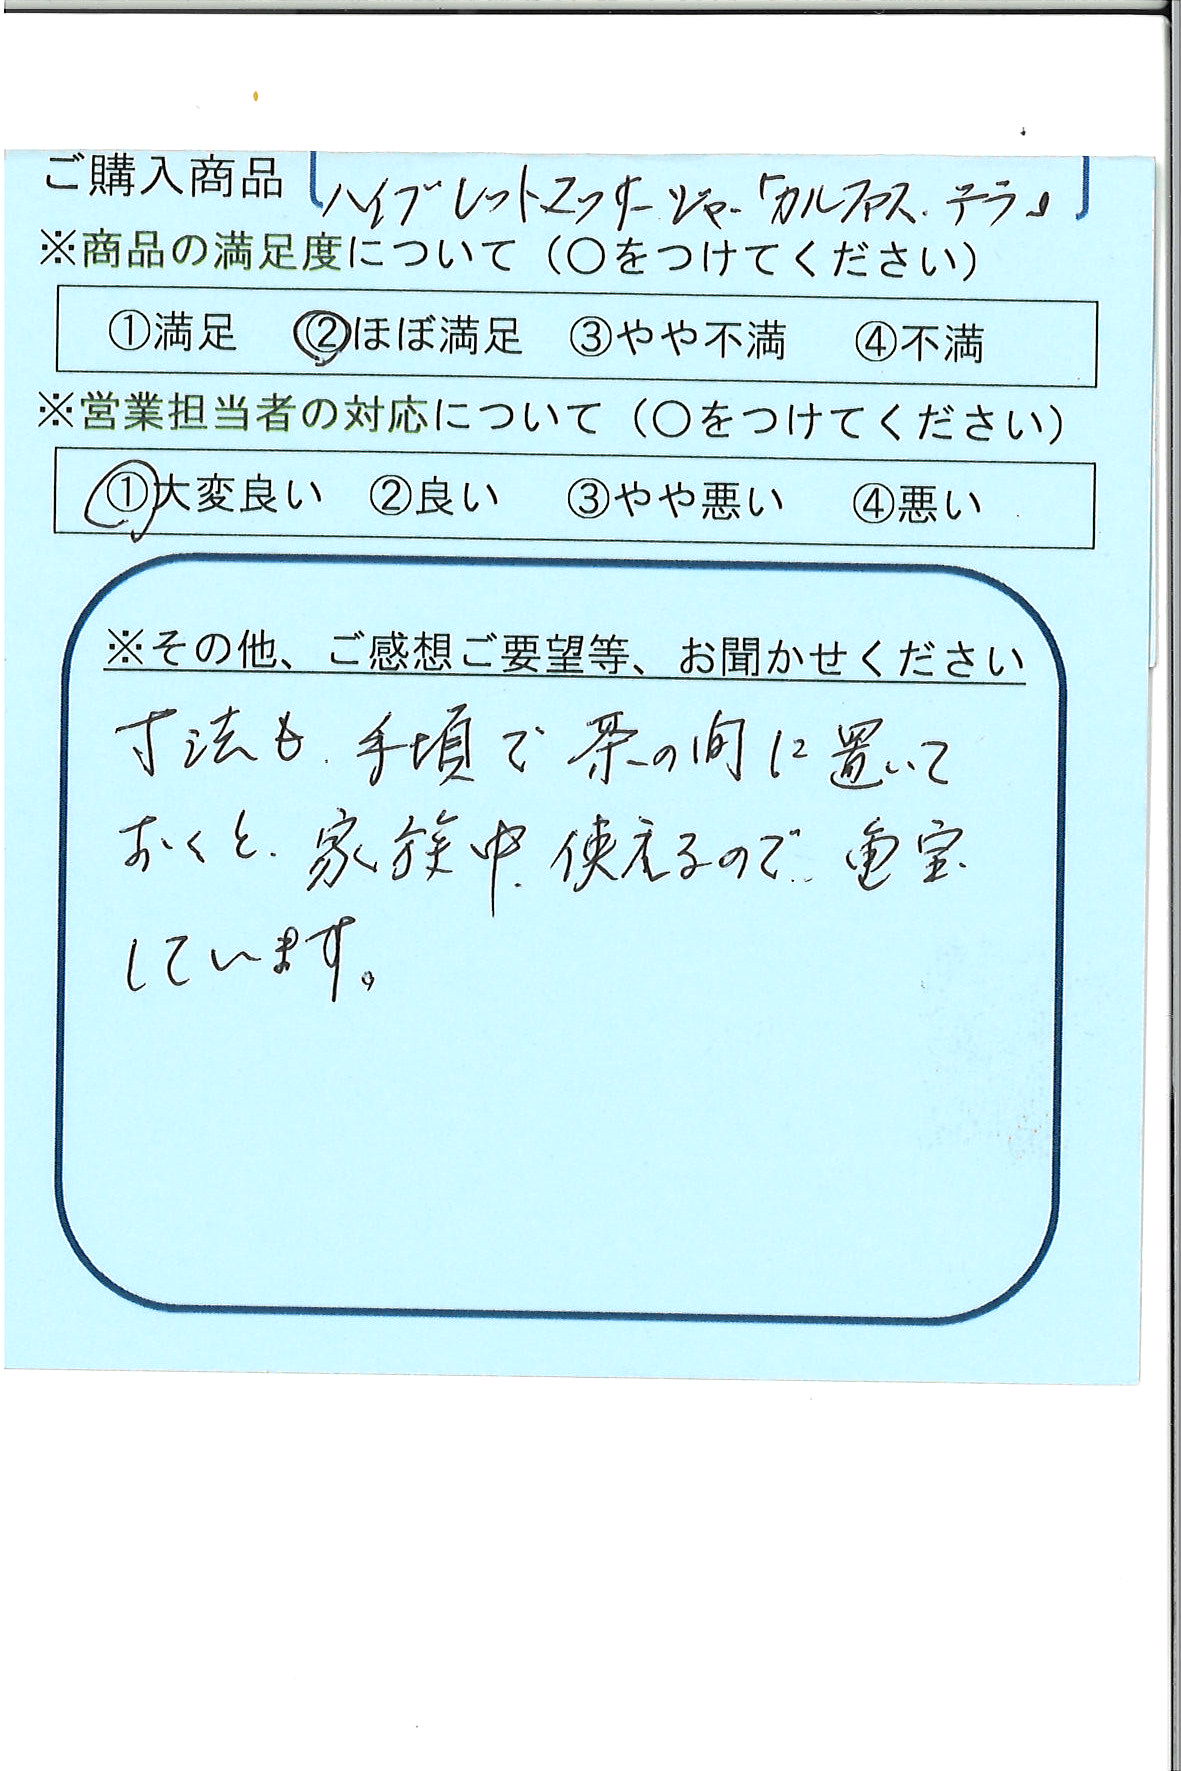 ご購入商品 [ハイブレットマッサージャー「カルファス.テラ」]
※商品の満足度について（○をつけてください）
①満足 ②ほぼ満足 ③やや不満 ④不満
※営業担当者の対応について（○をつけてください）
①大変良い ②良い ③やや悪い ④悪い
※その他、ご感想ご要望等、お聞かせください
寸法も.手頃で茶の間に置いて
おくと.家族中.使えるので.重宝.
しています。